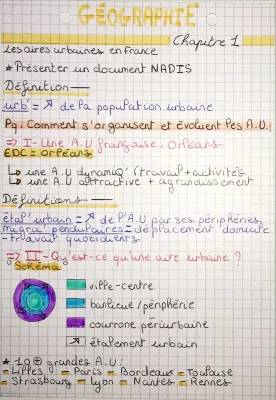 GÉOGRAPHIE
Chapitre 1
Les aires urbaines en france
* Présenter un document NADIS
Définition
urb° = ↗ de la population urbaine
Pq : Comment s'organisent et évoluent les A.U.
=> I - Une A.U française. Orléans
EDC = Orléans
↳ une A.U dynamiq' (travail + activités
↳ une A.U attractive + agrandissement
Définitions
étal° urbain = ↗ de l'A.U par ses périphéries
migra° pendulaires = déplacement domicile
- travail quotidiens
=> II - Qu'est-ce qu'une aire urbaine ?
Schéma
ville-centre
banlieue / périphérie
couronne périurbaine
↗ étalement urbain
* 10 ⊕ grandes A.U :
- Lilles - Paris - Bordeaux - Toulouse
- Strasbourg - Lyon - Nantes - Rennes